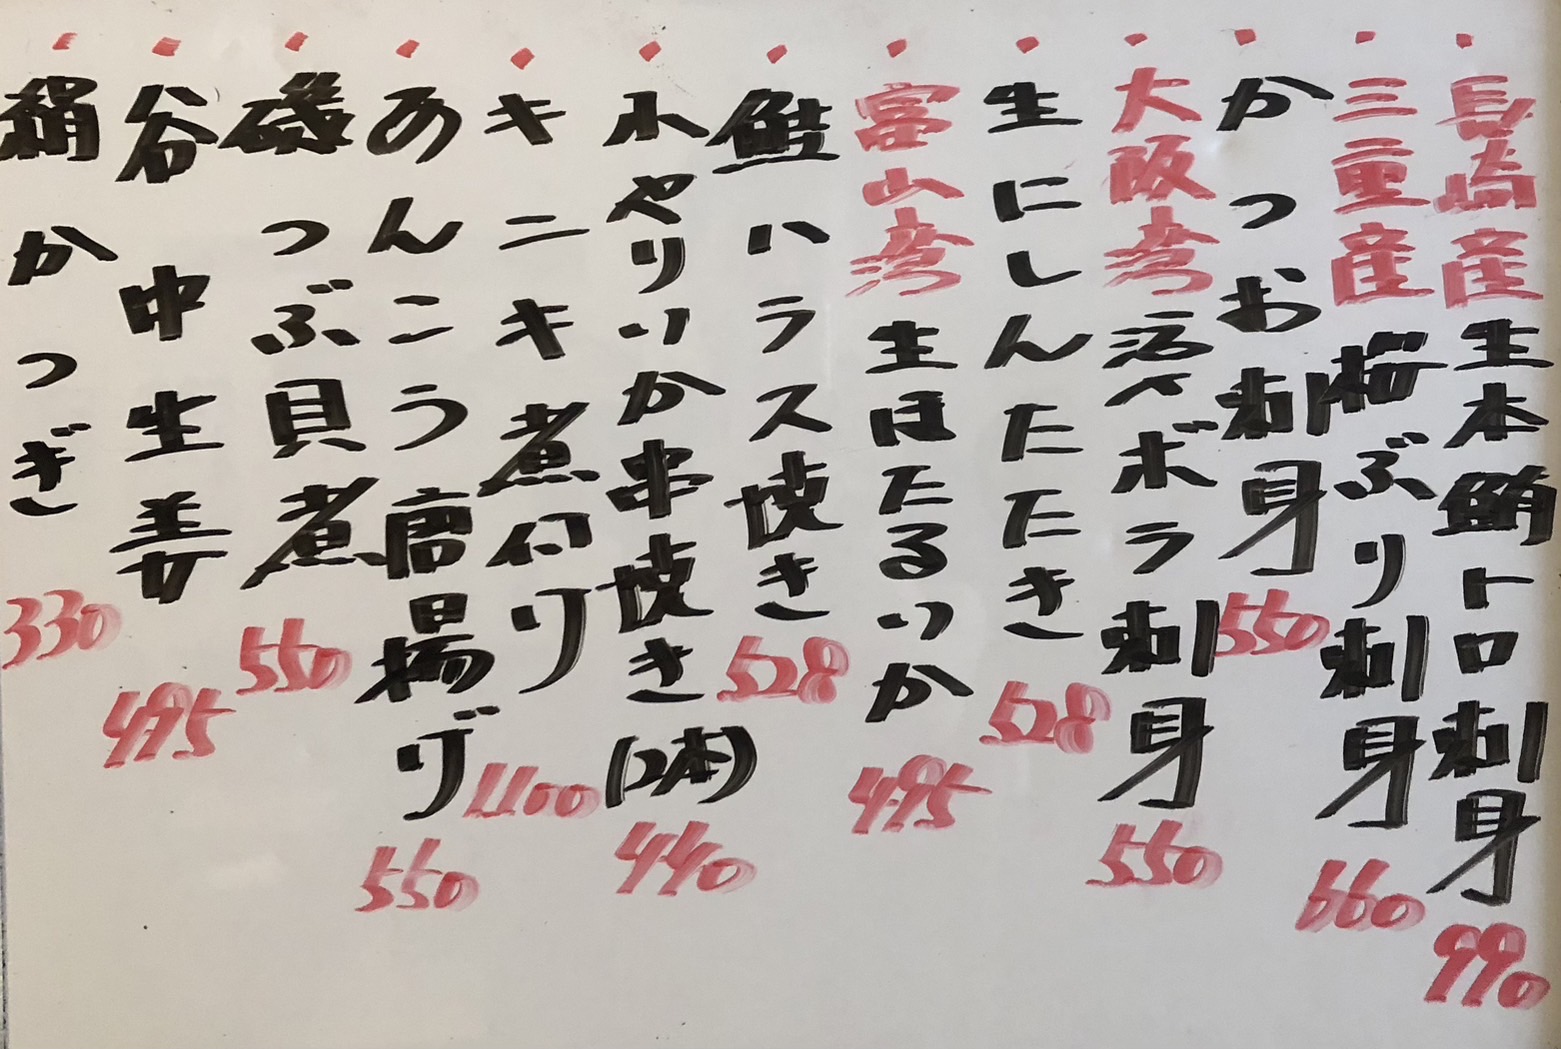 ・長崎産生本鮪トロ刺身 990
・三重産桜ぶり刺身 660
・かつお刺身 550
・大阪湾活〆ボラ刺身 550
・生にしんたたき 528
・富山湾生ほたるいか 495
・鮭ハラス焼き 528
・小やりいか串焼き(2本) 440
・キンキ煮付け 1100
・あんこう唐揚げ 550
・磯つぶ貝煮 550
・谷中生姜 495
・絹かつぎ 330